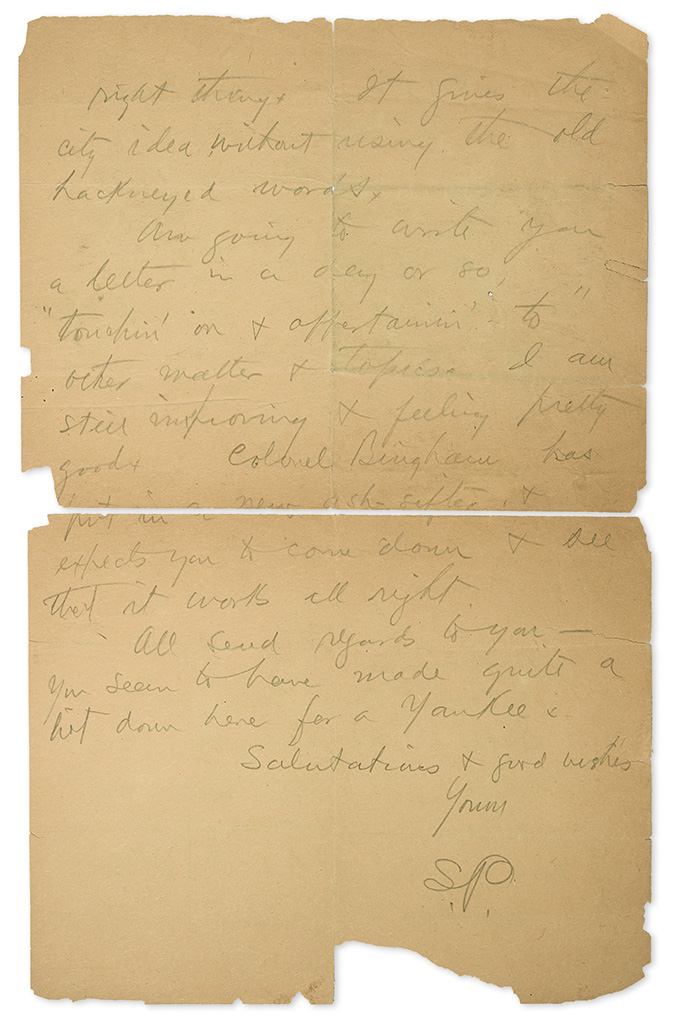 right thing x It gives the
city idea without using the old
hackneyed words x
Am going to write you
a letter in a day or so,
"touchin' on & appertainin'-to"
other matter & topics x I am
still improving & feeling pretty
good x Colonel Bingham has
put in a new ash-sifter, &
expects you to come down & see
that it works all right.
All send regards to you —
You seem to have made quite a
hit down here for a Yankee x
Salutations & good wishes
Yours
S.P.